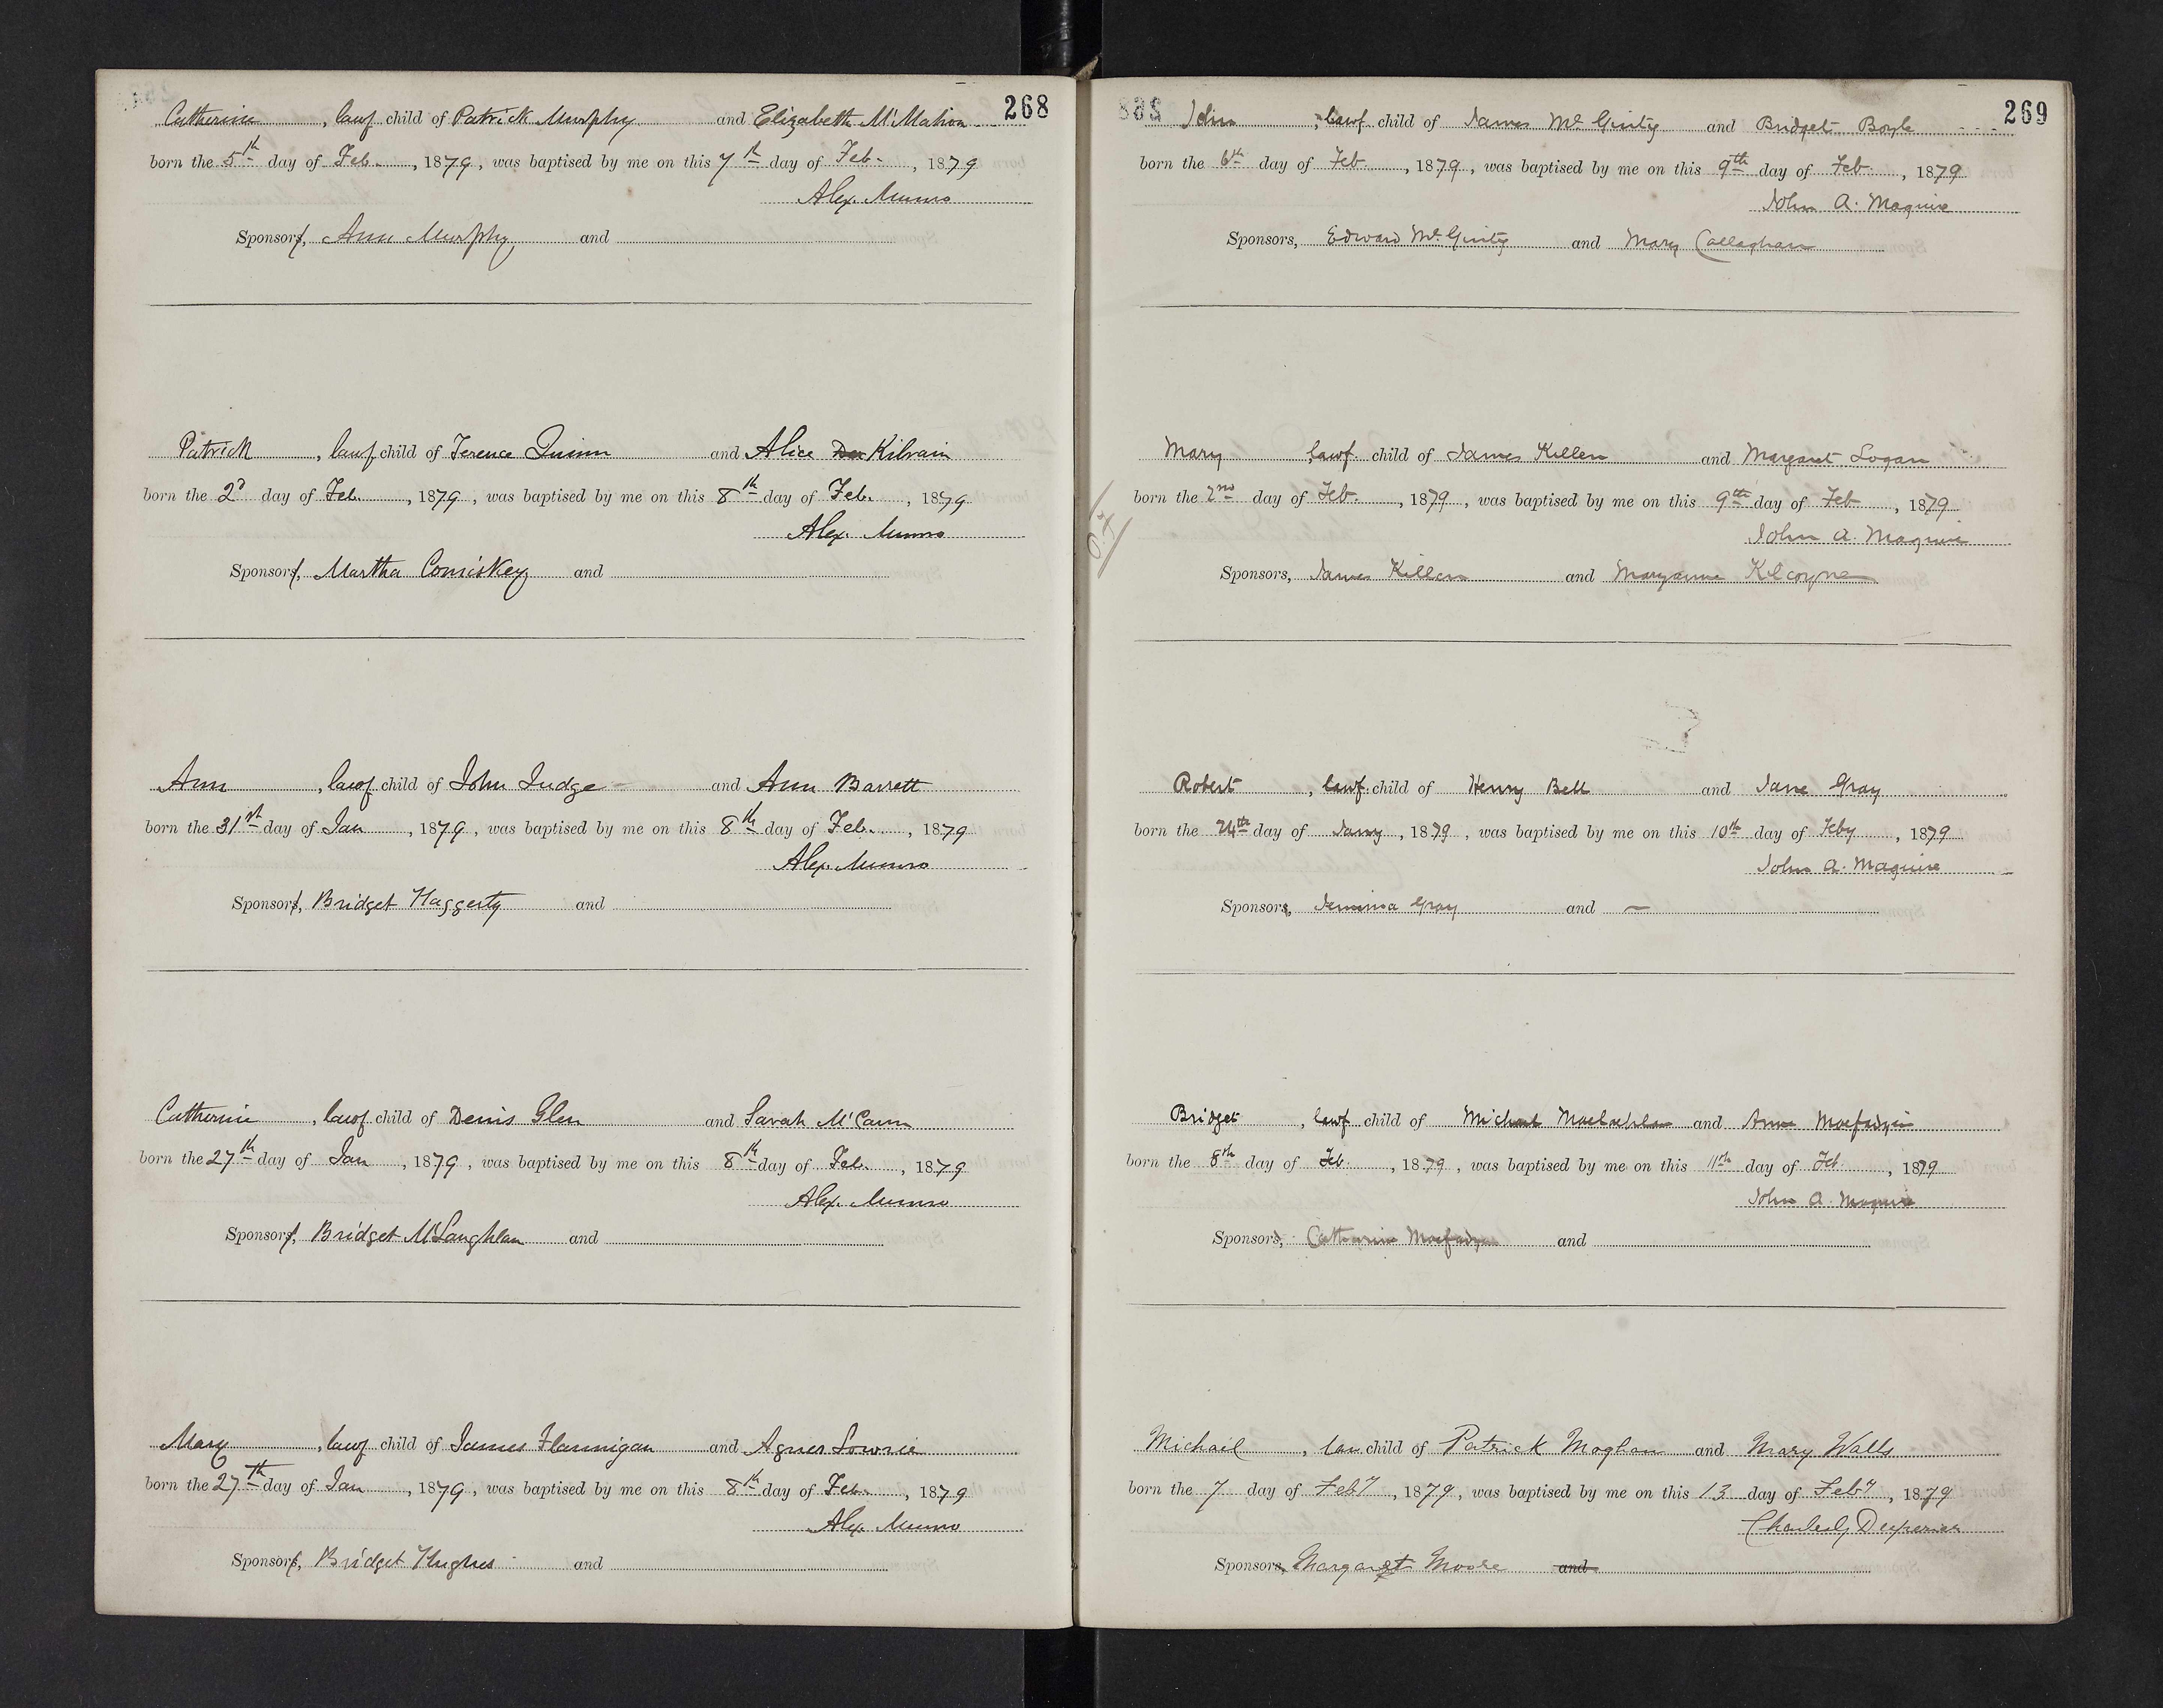 268
Catherine, lawf child of Patrick Murphy and Elizabeth McMahon
born the 5th day of Feb., 1879, was baptised by me on this 7th day of Feb., 1879
Alex. Munro
Sponsor, Ann Murphy and
Patrick, lawf child of Terence Quinn and Alice Kilvain
born the 2d day of Feb., 1879, was baptised by me on this 8th day of Feb., 1879
Alex. Munro
Sponsor, Martha Comiskey and
Ann, lawf child of John Judge and Ann Barrett
born the 31st day of Jan, 1879, was baptised by me on this 8th day of Feb., 1879
Alex. Munro
Sponsor, Bridget Haggerty and
Catherine, lawf child of Denis Glen and Sarah McCann
born the 27th day of Jan, 1879, was baptised by me on this 8th day of Feb., 1879
Alex. Munro
Sponsor, Bridget McLaughlan and
Mary, lawf child of James Flannigan and Agnes Lowrie
born the 27th day of Jan, 1879, was baptised by me on this 8th day of Feb., 1879
Alex. Munro
Sponsor, Bridget Hughes and
269
John, lawf child of James McGinty and Bridget Boyle
born the 6th day of Feb, 1879, was baptised by me on this 9th day of Feb, 1879
John A. Maguire
Sponsors, Edward McGinty and Mary Callaghan
Mary lawf child of James Killen and Margaret Logan
born the 2nd day of Feb, 1879, was baptised by me on this 9th day of Feb, 1879
John A. Maguire
Sponsors, James Killen and Maryanne Kilcoyne
Robert, lawf. child of Henry Bell and Jane Gray
born the 24th day of Jany, 1879, was baptised by me on this 10th day of Feby, 1879
John A. Maguire
Sponsors, Jemima Gray and —
Bridget, lawf child of Michael and Anne
born the 8th day of Feb, 1879, was baptised by me on this 11th day of Feb, 1879
John A. Maguire
Sponsors, Catherine and
Michail, law child of Patrick Moghan and Mary Walls
born the 7 day of Feby, 1879, was baptised by me on this 13 day of Feby, 1879
Sponsors, Margaret Moore and